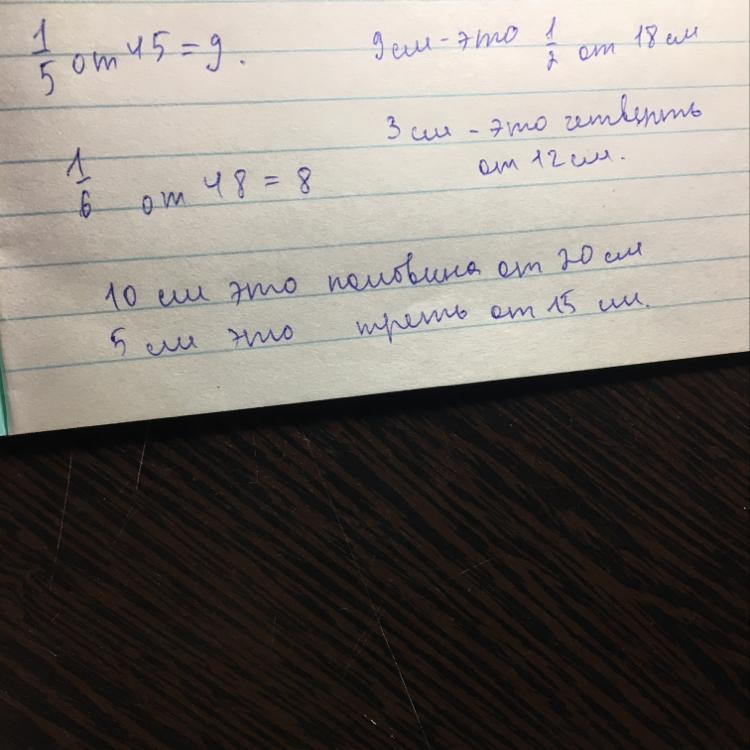 1/5 от 45 = 9.
9 см - это 1/2 от 18 см
3 см - это четверть
от 12 см.
1/6 от 48 = 8
10 см это половина от 20 см
5 см это треть от 15 см.